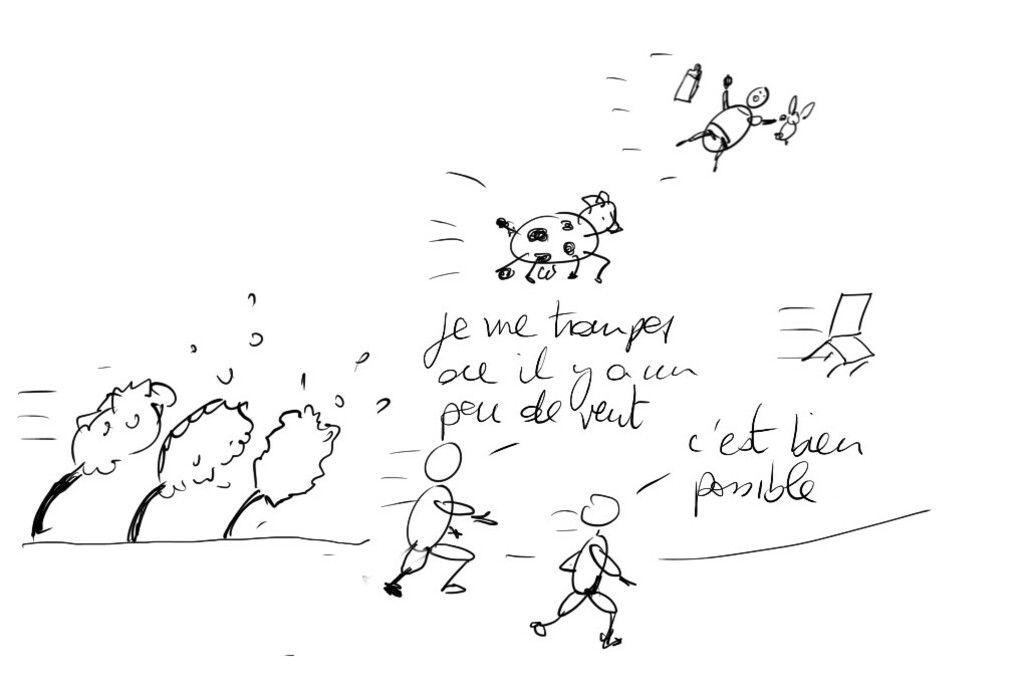 je me trompes
ou il y a un
peu de vent
c'est bien
possible